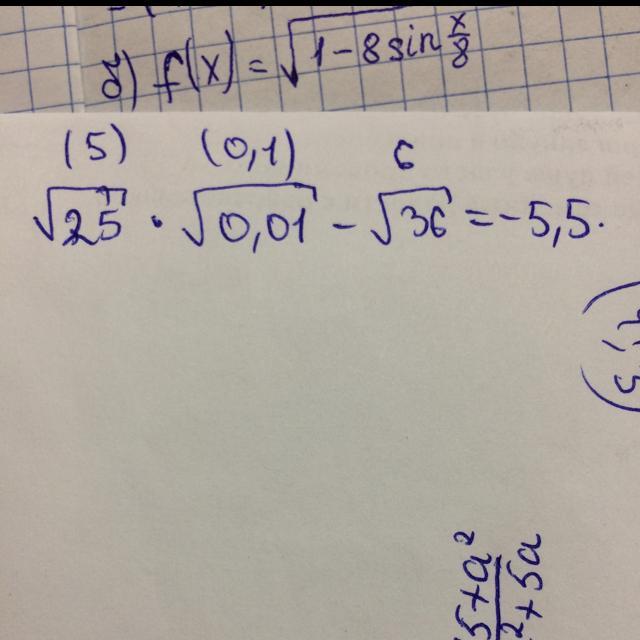 б) f(x) = √(1 - 8 sin x/8)
(5) (0,1) 6
√25 · √0,01 - √36 = -5,5.
5 + a²
² + 5a